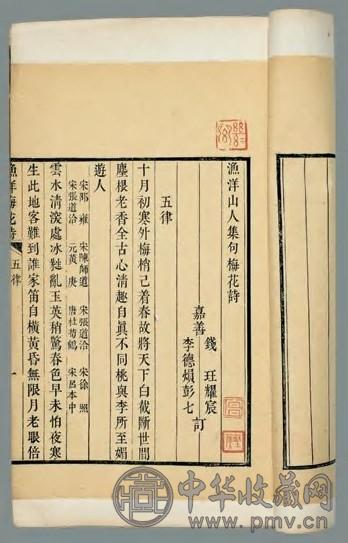 漁洋山人集句梅花詩
嘉善 錢玨耀宸
李德煩彭七 訂
五律
十月初寒外梅梢已着春故將天下白截斷世間
塵根老香全古心清趣自眞不同桃與李所至媚
遊人
宋邵雍 宋陳師道 宋張道洽 宋徐照
宋張道洽 元黃庚 唐杜荀鶴 宋呂本中
雲水清深處冰
亂玉英稍驚春色早未怕夜寒
生此地客難到誰家笛自橫黃昏無限月老眼倍
漁洋梅花詩
五律
一
中华收藏网
www.pmv.cn